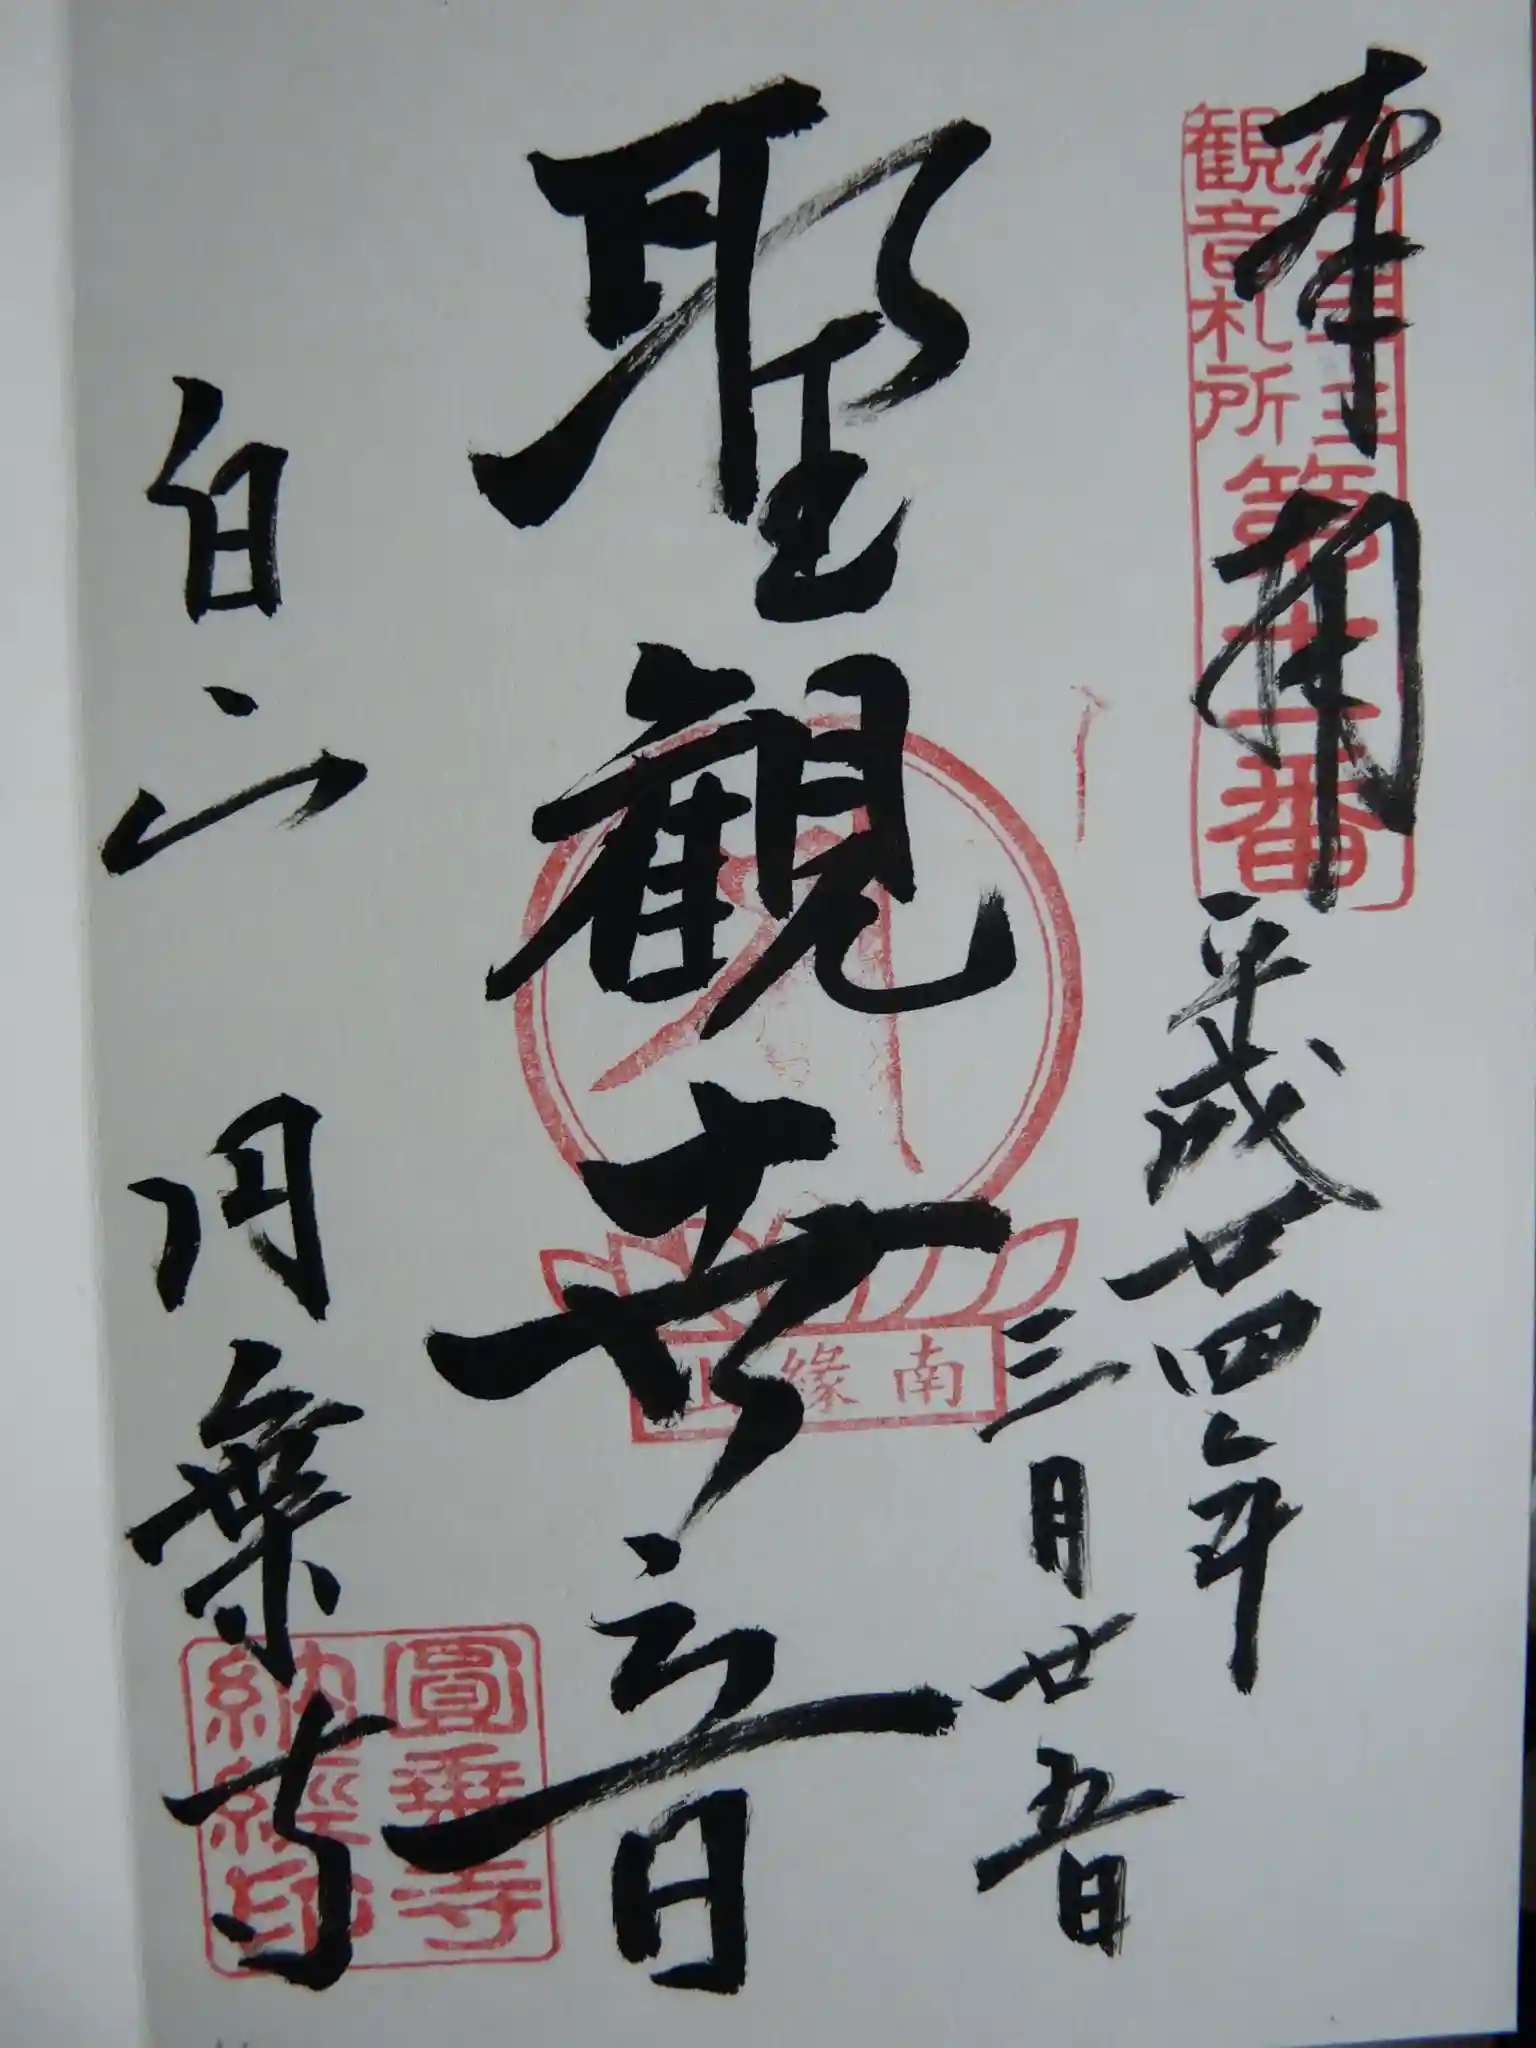 奉拝
平成廿四年
三月廿五日
観音札所
第十一番
聖観世音
南緣山
白山 円乗寺
圓乗寺
納經印